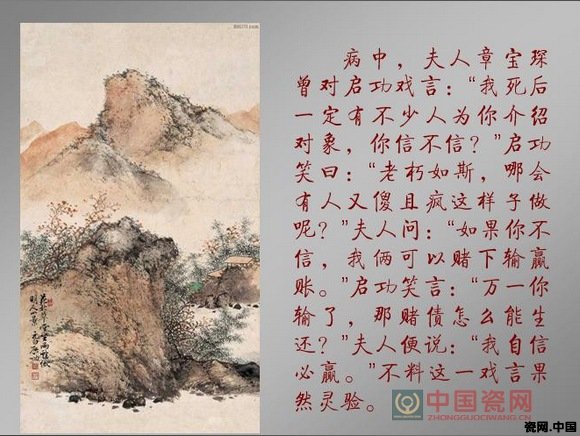 病中，夫人章宝琛
曾对启功戏言：“我死后
一定有不少人为你介绍
对象，你信不信？”启功
笑曰：“老朽如斯，哪会
有人又傻且疯这样子做
呢？”夫人问：“如果你不
信，我俩可以赌下输赢
账。”启功笑言：“万一你
输了，那赌债怎么能生
还？”夫人便说：“我自信
必赢。”不料这一戏言果
然灵验。
中国瓷网
ZHONGGUOCIWANG.CN
瓷网.中国